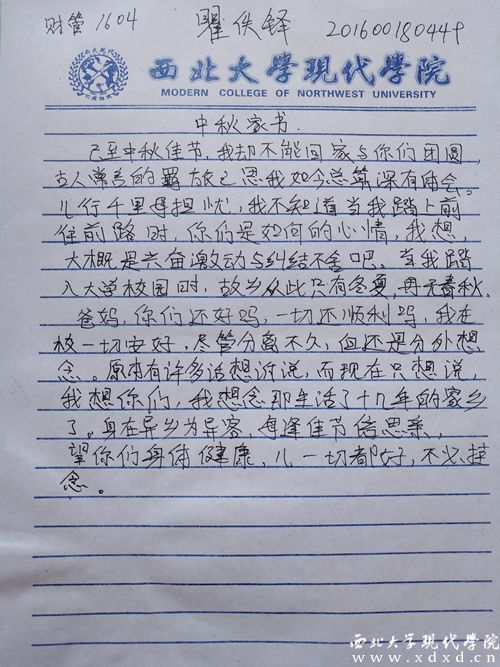 财管1604 瞿佚铎 2016001804449
西北大学現代學院
MODERN COLLEGE OF NORTHWEST UNIVERSITY
中秋家书.
已至中秋佳节,我却不能回家与你们团圆,
古人常言的羁旅之思我如今总算深有体会。
儿行千里母担忧,我不知道当我踏上前
往前路时,你们是如何的心情,我想,
大概是兴奋激动与纠结不舍吧。当我踏
入大学校园时,故乡从此只有冬夏,再无春秋.
爸妈,你们还好吗,一切还顺利吗,我在
校一切安好,尽管分离不久,但还是分外想
念。原本有许多话想诉说,而现在只想说,
我想你们,我想念那生活了十几年的家乡
了。身在异乡为异客,每逢佳节倍思亲,
望你们身体健康,儿一切都好,不必挂
念。
西北大学現代學院
www.xdxd.cn